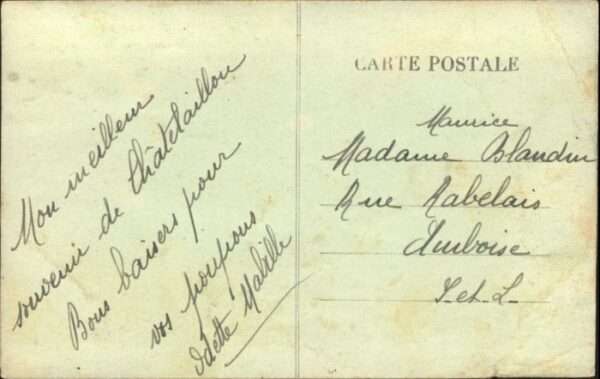 Mon meilleur
souvenir de Châtelaillon
Bons baisers pour
vos poupons
Odette
CARTE POSTALE
Maurice
Madame Blandin
Rue Rabelais
Amboise
I. et. L.